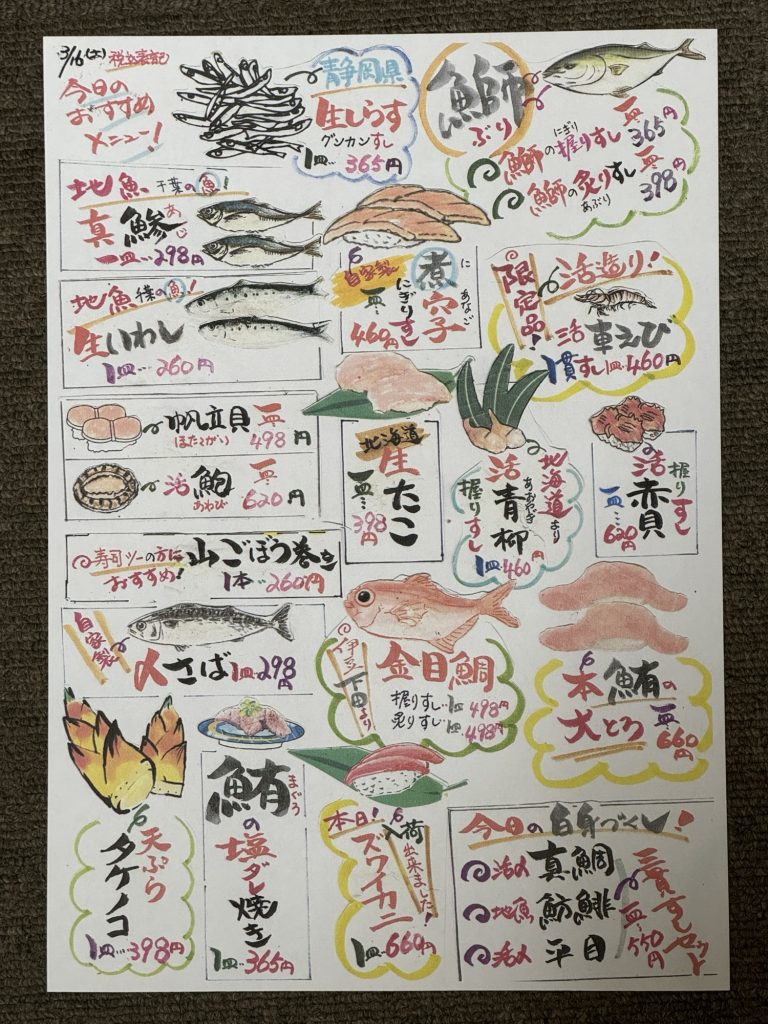 3/16(土) 税込表記
今日の
おすすめ
メニュー!
静岡県
生しらす
グンカンすし
1皿…365円
鰤
ぶり
鰤の握りすし 一皿 365円
にぎり
鰤の炙りすし 一皿 398円
あぶり
地魚 千葉の魚!
真鯵
あじ
一皿…298円
自家製
煮穴子
に あなご
にぎりすし
一皿…460円
限定品!
活造り!
活 車えび
1貫すし1皿…460円
地魚 千葉の魚!
生いわし
1皿…260円
帆立貝 一皿
ほたてがい 498円
活 鮑 一皿…
あわび 620円
北海道
生たこ
一皿…398円
北海道より
活 青柳
あおやぎ
握りすし
1皿…460円
活赤貝
握りすし
一皿…620円
寿司ツーの方に
おすすめ!
山ごぼう巻き
1本…260円
自家製
〆さば 1皿…298円
伊豆下田より
金目鯛
握りすし…1皿498円
炙りすし…1皿498円
本鮪の
大とろ 一皿…660円
天ぷら
タケノコ
1皿…398円
鮪の塩ダレ焼き
まぐろ
1皿…365円
本日!
入荷出来ました!
ズワイカニ
1皿…660円
今日の白身づくし!
活〆 真鯛
地魚 魴鮄
活〆 平目
三貫すしセット
一皿…550円